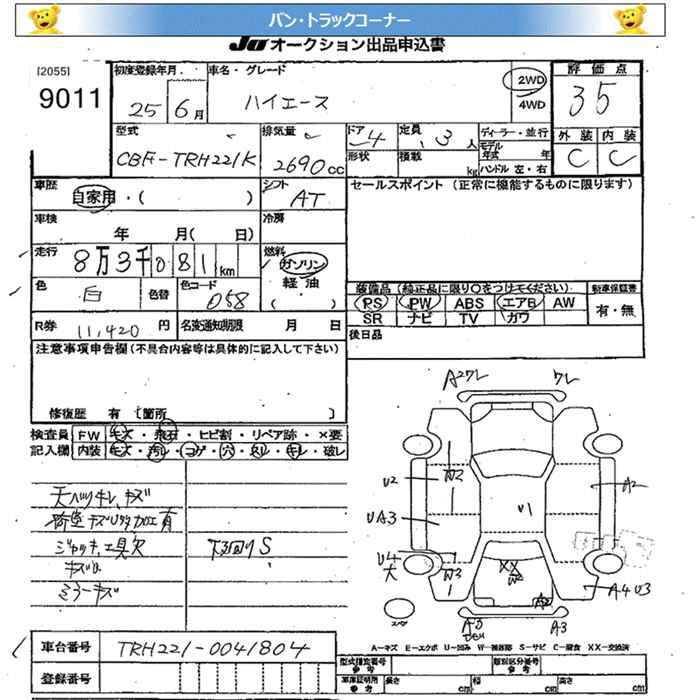 バン・トラックコーナー
JU オークション出品申込書
[2055]
9011
初度登録年月
25 6月
車名・グレード
ハイエース
2WD
4WD
評価点
3 5
外装 内装
C C
型式
CBF-TRH221K
排気量
2690cc
ドア 4
形状
定員 3人
積載 kg
ディーラー・並行
モデル年式 年
ハンドル 左・右
車歴
自家用・( )
シフト
AT
セールスポイント (正常に機能するものに限ります)
車検
年 月( 日)
冷房
走行
8万3千081km
燃料
ガソリン
軽油
色
白
色替
色コード
058
( )
装備品 (純正品に限り○をつけてください)
新車保証書
PS PW ABS エアB AW
有・無
SR ナビ TV ガワ
R券 11,420円
名変通知期限 月 日
後日品
注意事項申告欄(不具合内容等は具体的に記入して下さい)
修復歴 有 [箇所 ]
検査員 FW キズ・飛石・ヒビ割・リペア跡・×要
記入欄 内装 キズ・汚レ・コゲ・穴・スレ・キレ・破レ
ジャッキ、工具欠
下回りS
ミラーキズ
A27レ
ワレ
W2
U2
A2
UA3
U1
U4
大
W3
XX
W2
A4U3
A3
A3
スペア
A-キズ E-エクボ U-凹み W-補修跡 S-サビ C-腐食 XX-交換済
車台番号
TRH221-0041804
登録番号
型式指定番号
参考
類別区分番号
参考
車庫証明用
参考
長さ cm
幅 cm
高さ cm